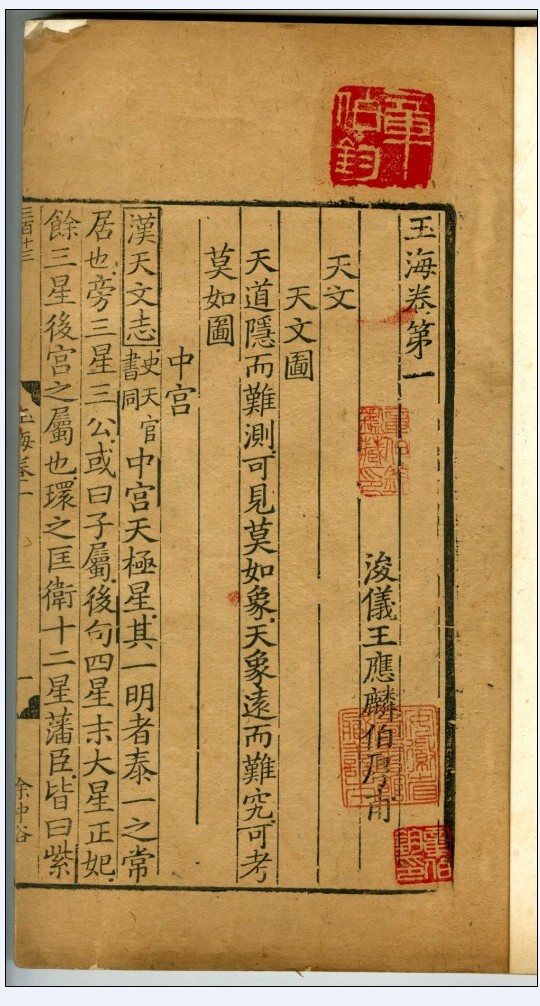 玉海卷第一
浚儀王應麟伯厚甫
天文
天文圖
天道隱而難測可見莫如象天象遠而難究可考
莫如圖
中宮
漢天文志史天官書同中宮天極星其一明者泰一之常
居也旁三星三公或曰子屬後句四星末大星正妃
餘三星後宮之屬也環之匡衛十二星藩臣皆曰紫
三百廿三
玉海卷一
章伯鈞